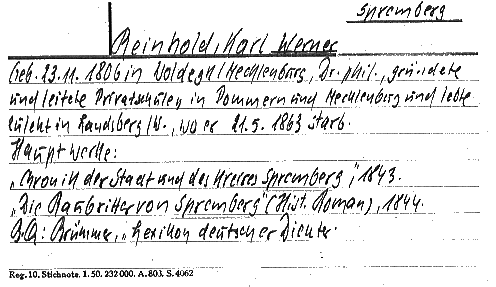 Spremberg
Reinhold, Karl Werner
geb. 23.11.1806 in Woldegk/Mecklenburg, Dr. phil., gründete
und leitete Privatschulen in Pommern und Mecklenburg und lebte
zuletzt in Landsberg/W., wo er 21.5.1863 starb.
Hauptwerke:
„Chronik der Stadt und des Kreises Spremberg", 1843.
„Die Raubritter von Spremberg" (Hist. Roman), 1844.
Brümmer, „Lexikon deutscher Dichter.
Reg. 10. Stichnote. 1. 50. 232000. A. 803. S. 4062